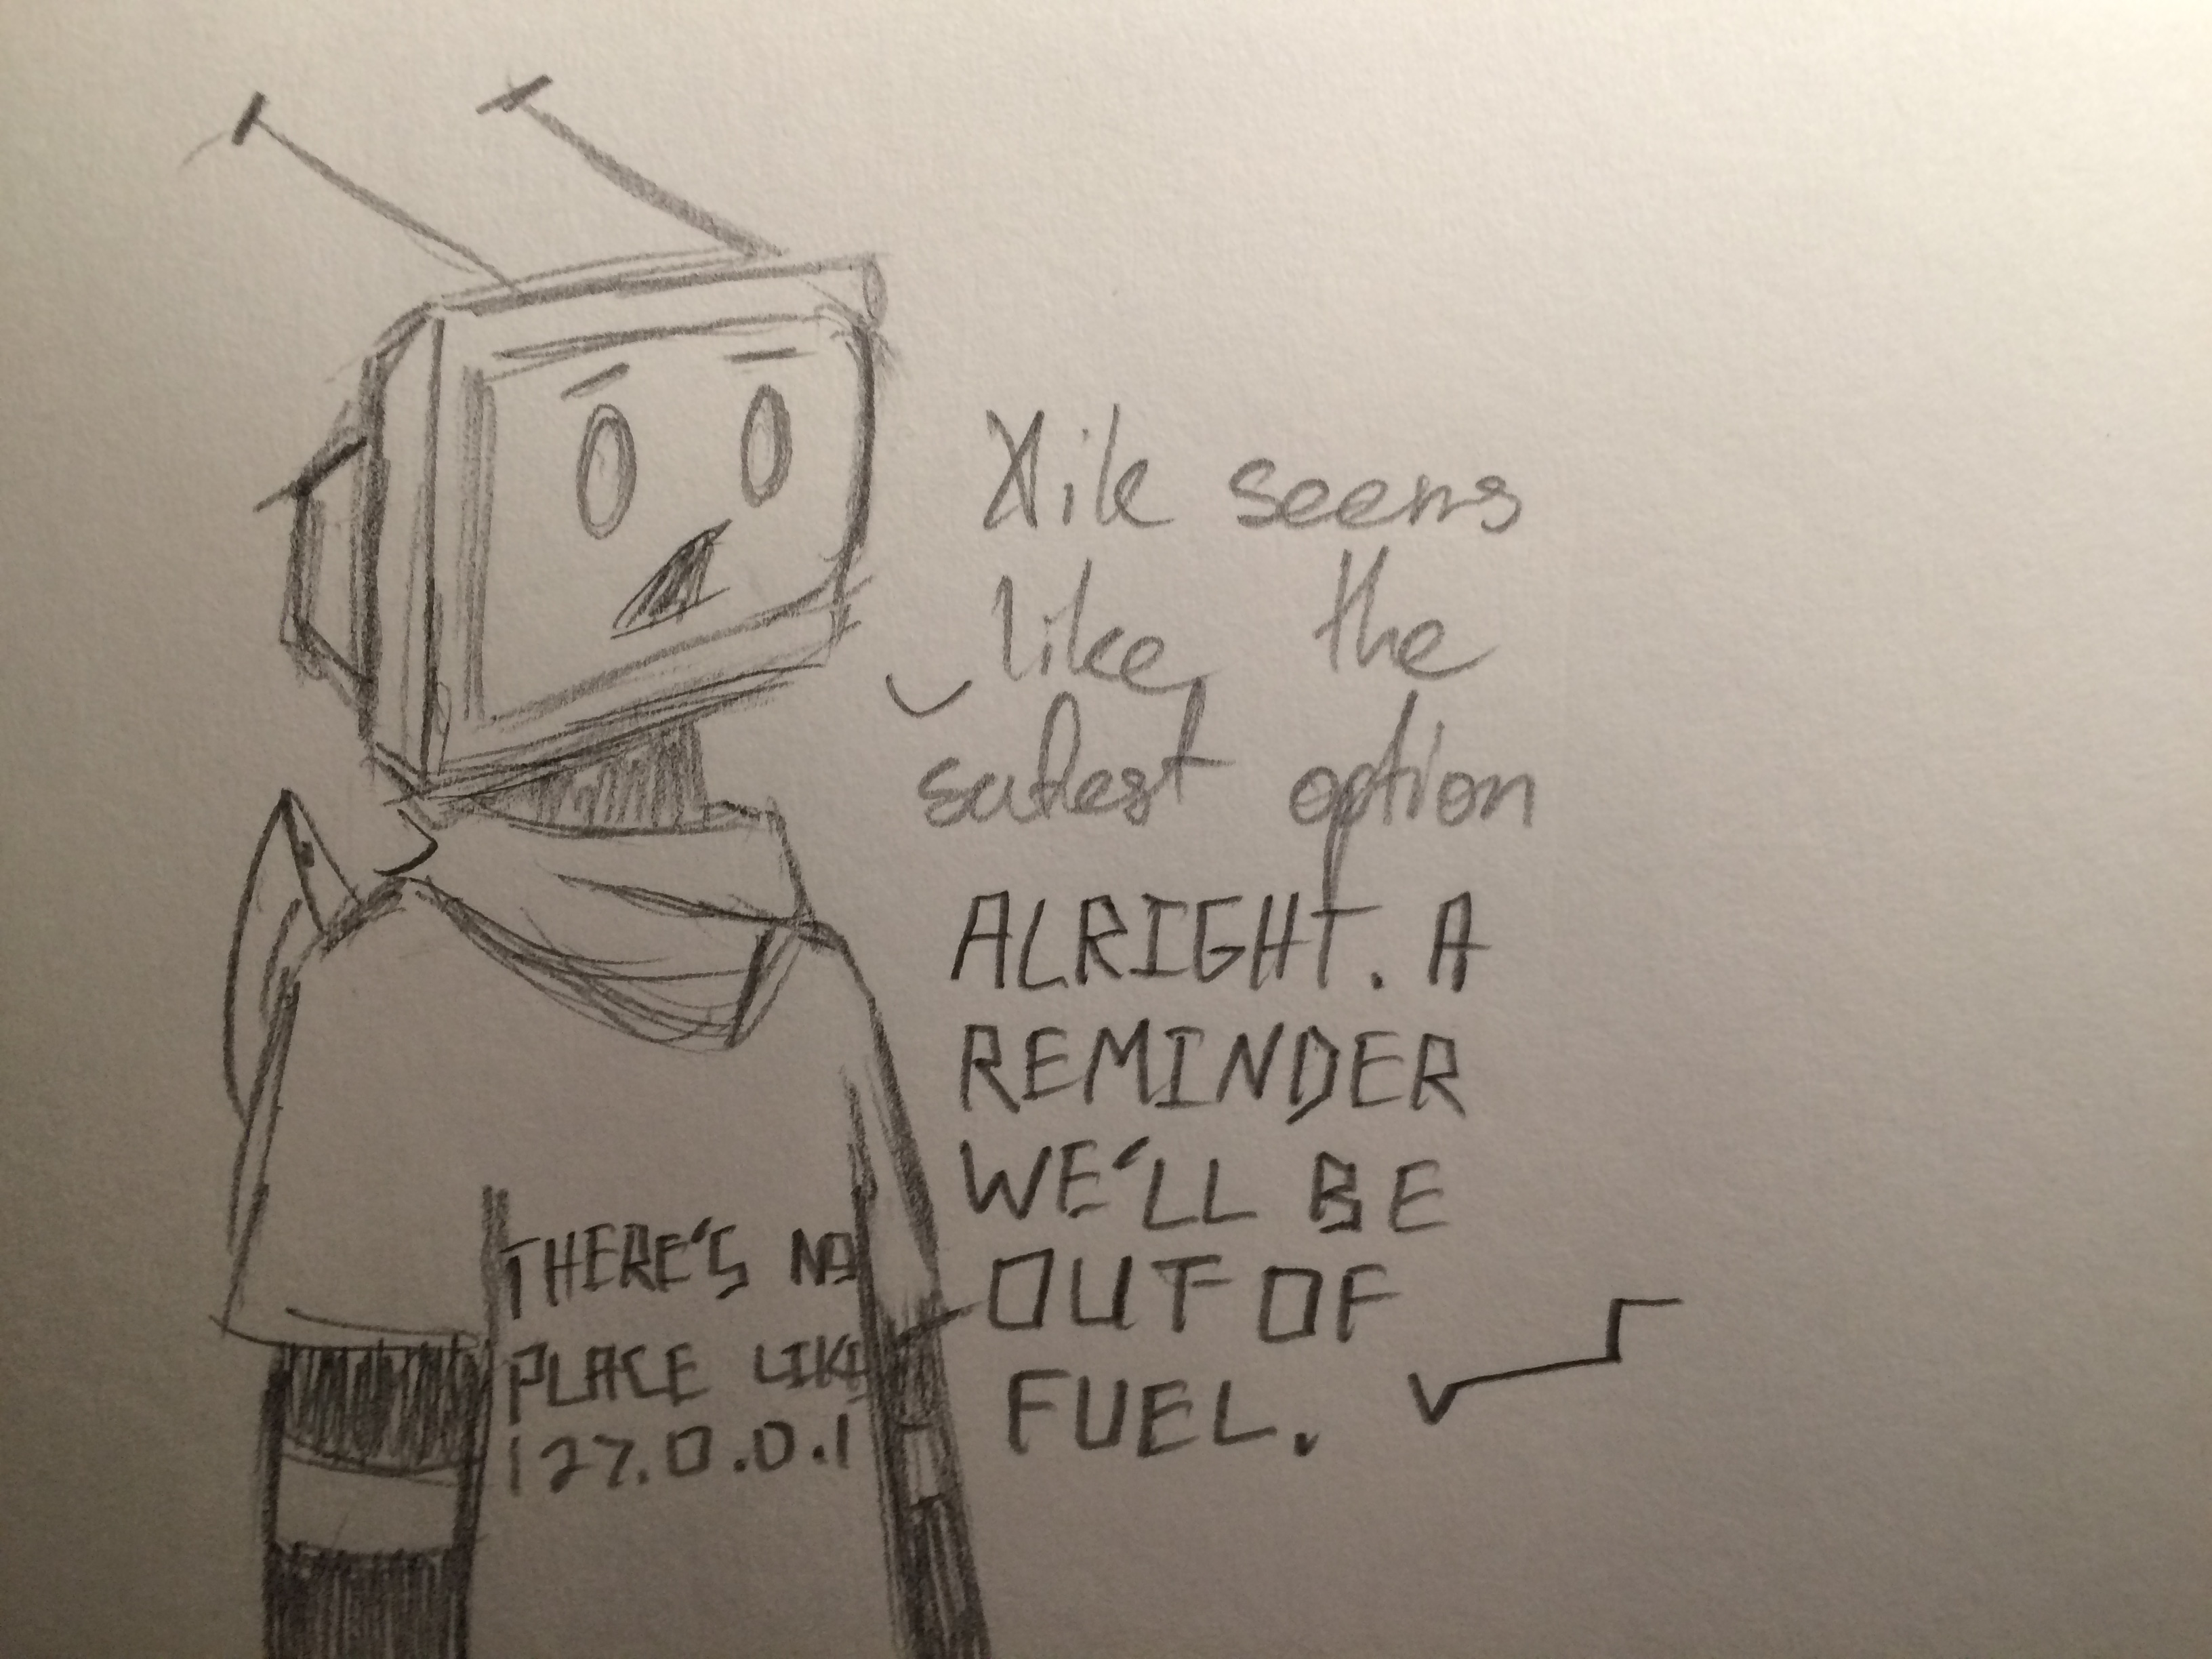 Xik seems
like the
safest option
ALRIGHT. A
REMINDER
WE'LL BE
OUT OF
FUEL.
THERE'S NO
PLACE LIKE
127.0.0.1